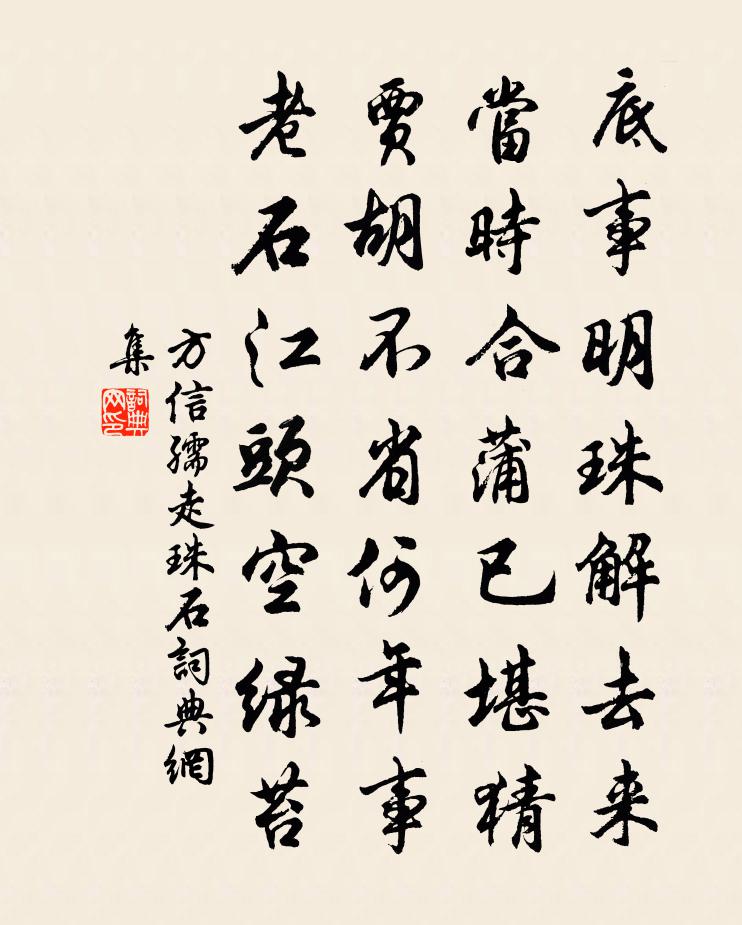 底事明珠解去来
當時合蒲已堪猜
賈胡不省何年事
老石江頭空緑苔
方信孺走珠石詞典網
集
詞典网印